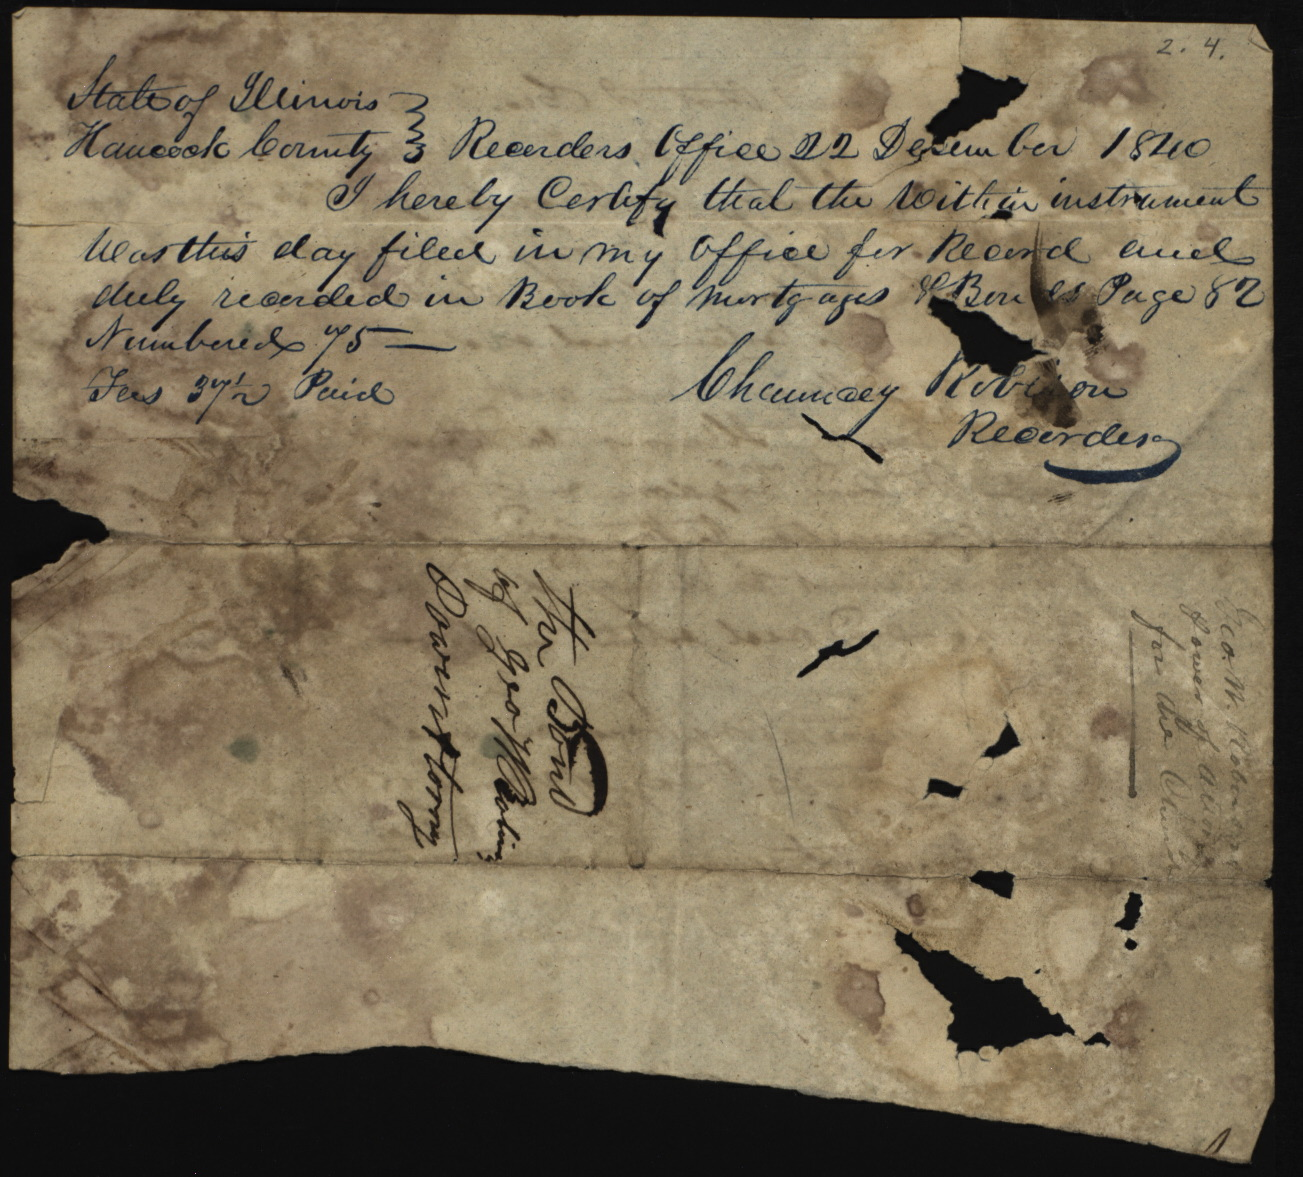 2. 4.
State of Illinois
Hancock County } Recorders Office 22 December 1840
I hereby Certify that the within instrument
was this day filed in my office for Record and
duly recorded in Book of mortgages & Bonds Page 82
Numbered 75 —
Fees 37½ Paid
Chauncey Robison
Recorder
The Bond
of Geo W Robins
Davenst
Geo. W. Robinson
Power of
for the